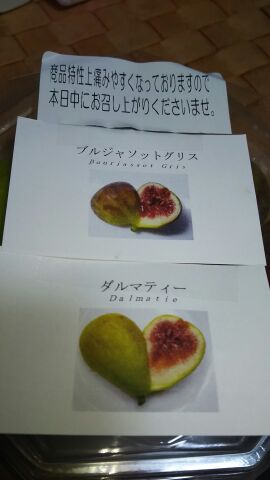 商品特性上痛みやすくなっておりますので
本日中にお召し上がりくださいませ。
ブルジャソットグリス
Bourjassot Gris
ダルマティー
Dalmatie